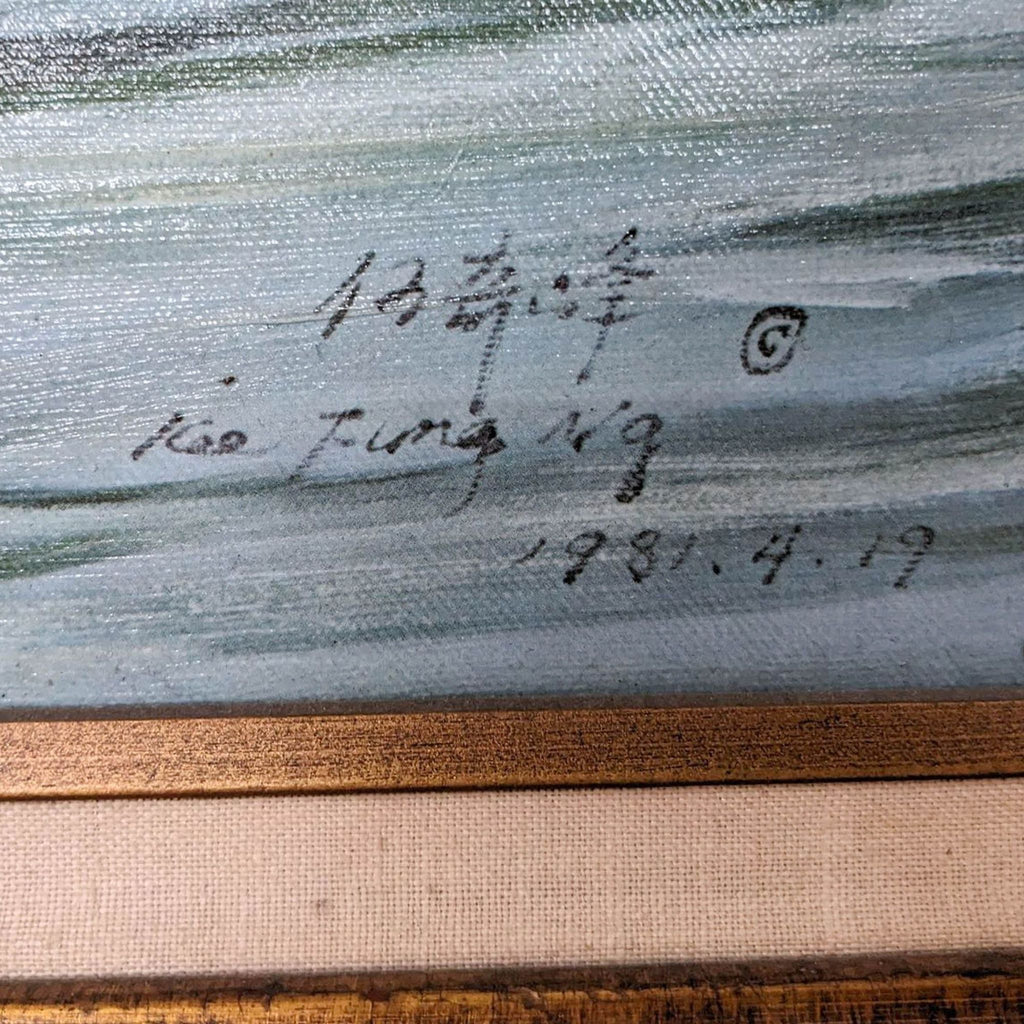 伍奇峰 ©
Kee Fung Ng
1981.4.19